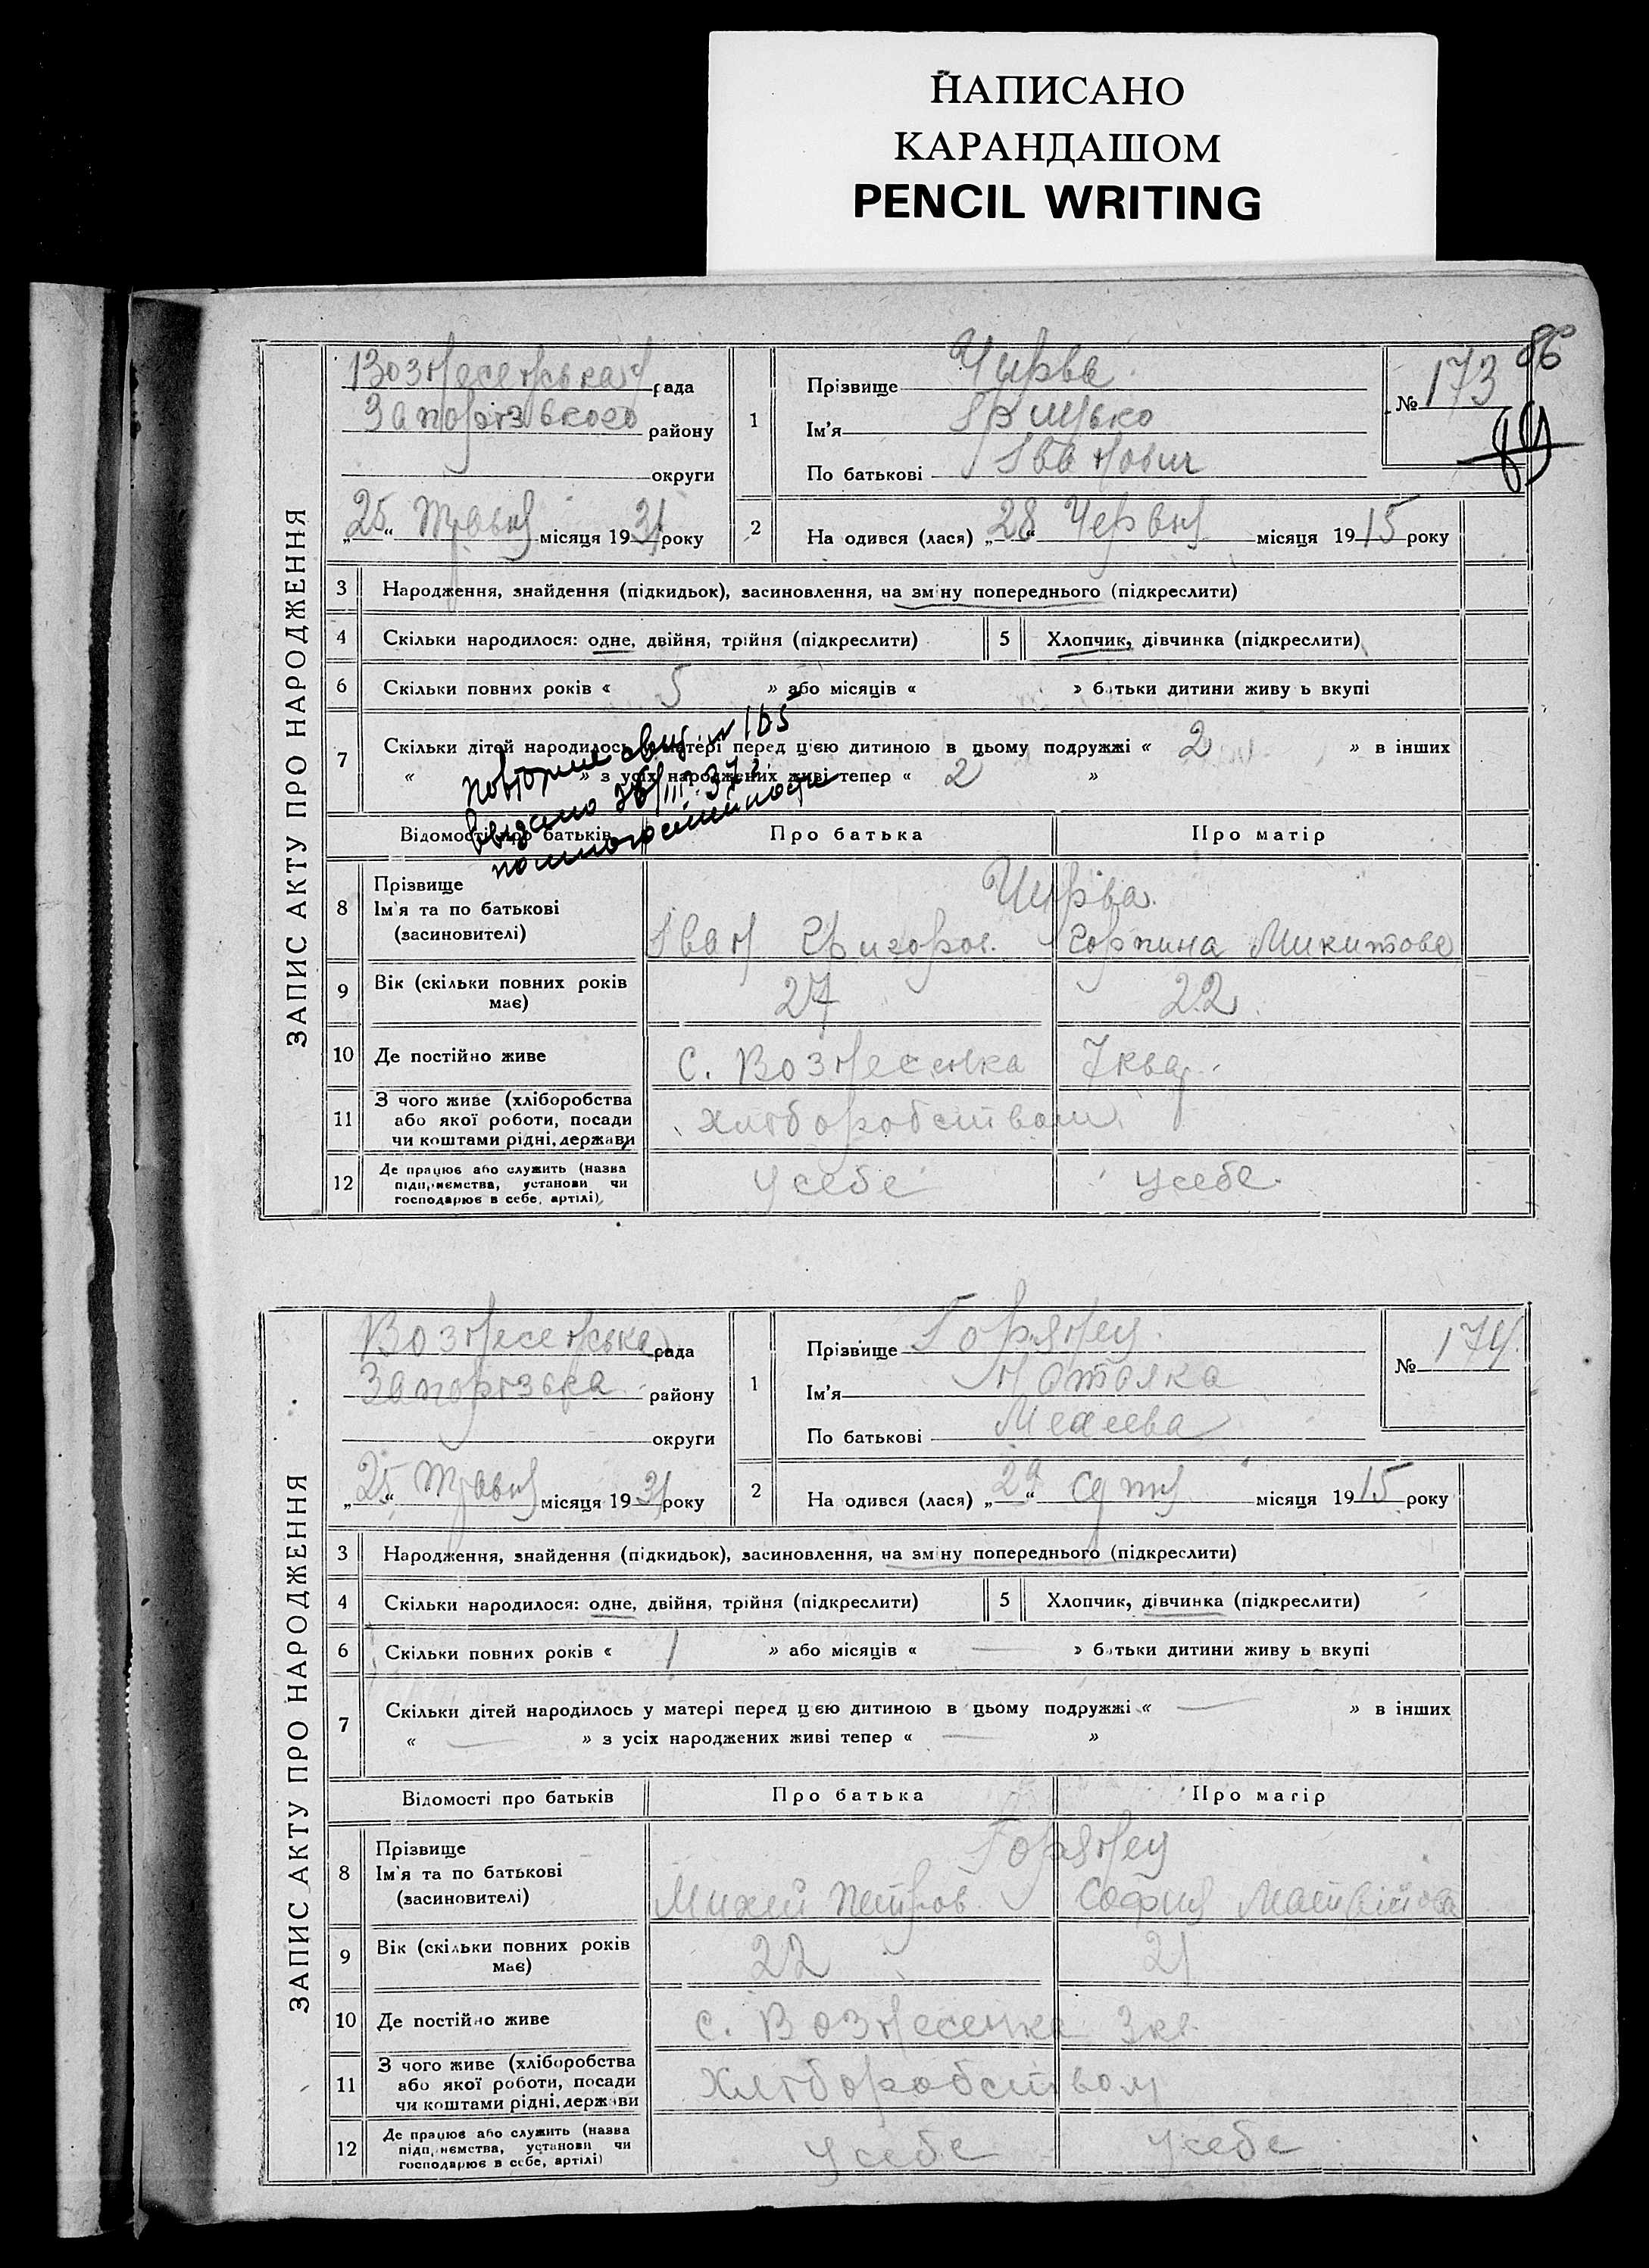 НАПИСАНО
КАРАНДАШОМ
PENCIL WRITING
86
89
ЗАПИС АКТУ ПРО НАРОДЖЕННЯ
Вознесенська рада
Запорізького району
округи
„25“ Травня місяця 1931 року
1
Прізвище Чирва
Ім'я Грицько
По батькові Іванович
№ 173
2
На одився (лася) „28“ Червня місяця 1915 року
3 Народження, знайдення (підкидьок), засиновлення, на зміну попереднього (підкреслити)
4 Скільки народилося: одне, двійня, трійня (підкреслити) 5 Хлопчик, дівчинка (підкреслити)
6 Скільки повних років « 5 » або місяців « » батьки дитини живу ь вкупі
7 Скільки дітей народилось у матері перед цією дитиною в цьому подружжі « 2 » в інших
« » з усіх народжених живі тепер « 2 »
повторне свид. № 105
видано 28/III 37 г.
Відомості про батьків Про батька Про матір
8 Прізвище
Ім'я та по батькові
(засиновителі)
Чирва
Іван Григоров. Горпина Микитова
9 Вік (скільки повних років має) 27 22
10 Де постійно живе с. Вознесенка 7 квар.
11 З чого живе (хліборобства
або якої роботи, посади
чи коштами рідні, держави
хліборобством
12 Де працює або служить (назва
підприємства, установи чи
господарює в себе, артілі)
у себе у себе
ЗАПИС АКТУ ПРО НАРОДЖЕННЯ
Вознесенська рада
Запорізька району
округи
„25“ Травня місяця 1931 року
1
Прізвище Горянец
Ім'я Наталка
По батькові
№ 174
2
На одився (лася) „29“ місяця 1915 року
3 Народження, знайдення (підкидьок), засиновлення, на зміну попереднього (підкреслити)
4 Скільки народилося: одне, двійня, трійня (підкреслити) 5 Хлопчик, дівчинка (підкреслити)
6 Скільки повних років « 1 » або місяців « — » батьки дитини живу ь вкупі
7 Скільки дітей народилось у матері перед цією дитиною в цьому подружжі « — » в інших
« — » з усіх народжених живі тепер « — »
Відомості про батьків Про батька Про матір
8 Прізвище
Ім'я та по батькові
(засиновителі)
Горянец
Михей Петров. София Матвійова
9 Вік (скільки повних років має) 22 21
10 Де постійно живе с. Вознесенка 3 кв.
11 З чого живе (хліборобства
або якої роботи, посади
чи коштами рідні, держави
Хліборобством
12 Де працює або служить (назва
підприємства, установи чи
господарює в себе, артілі)
у себе у себе